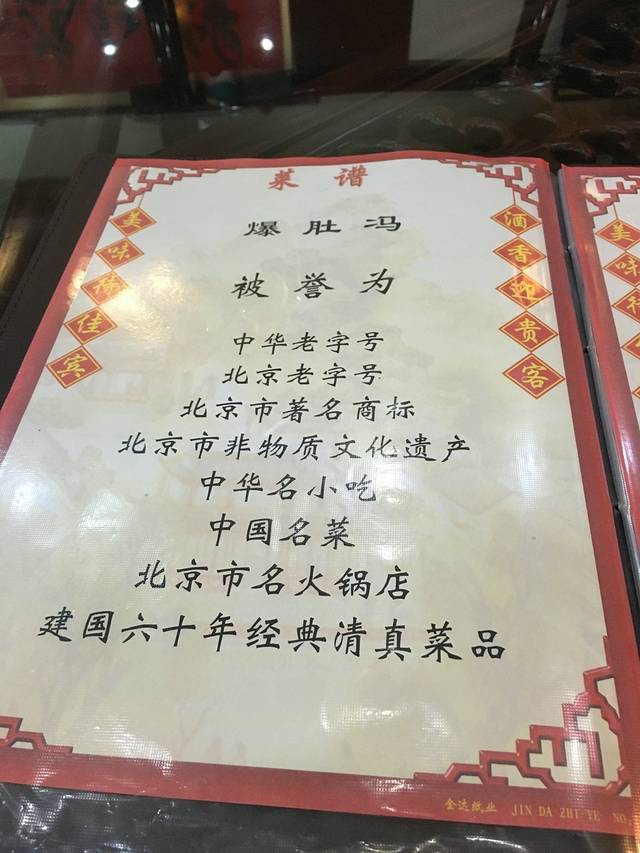 菜谱
爆肚冯
被誉为
中华老字号
北京老字号
北京市著名商标
北京市非物质文化遗产
中华名小吃
中国名菜
北京市名火锅店
建国六十年经典清真菜品
美味待佳宾
酒香迎贵客
金达纸业 JIN DA ZHI YE NO.
美味